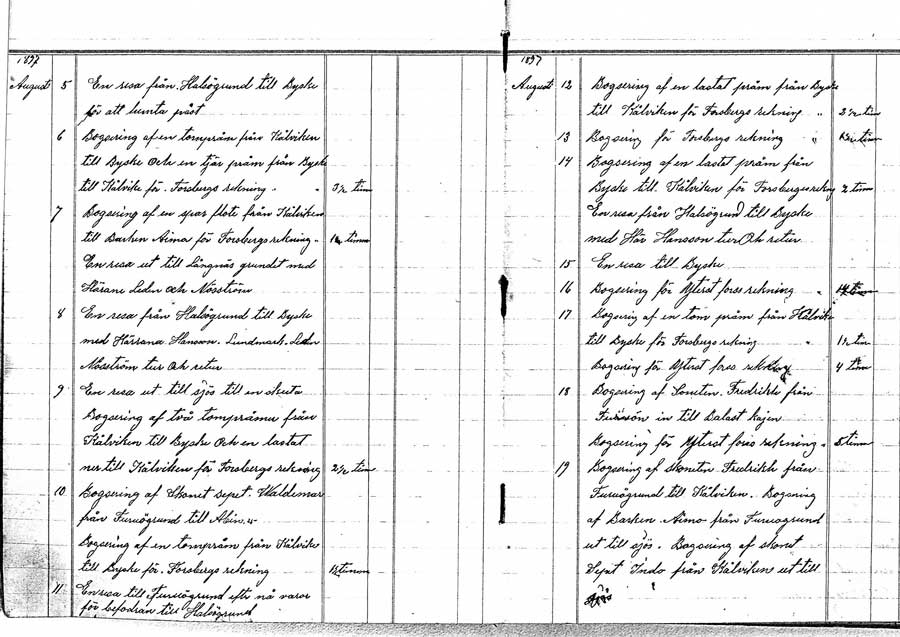 1897
August 5 En resa från Halsögrund till Byske
för att hemta
6 Bogsering af en tompråm från Kälviken
till Byske Och en tjär pråm från Byske
till Kälvike för Forsbergs rekning " 3½ tim
7 Bogsering af en spar flote från Kälviken
till Barken Aima för Forsbergs rekning " timm
En resa ut till Långnäs grundet med
Härane Leder Och Nosström
8 En resa från Halsögrund till Byske
med Härrana Hanson. Lundmark. Leder
Nosström tur Och retur
9 En resa ut till sjös till en skuta
Bogsering af två tompråmar från
Kälviken till Byske Och en lastat
ner till Kälviken för Forsbergs rekning 2½ tim
10 Bogsering af Skonet Depet. Waldemar
från Furuögrund till
Bogsering af en tompråm från Kälvike
till Byske för. Forsbergs rekning timm
11 En resa till Furuögrund eft nå varor
för befodran till Halsögrund
1897
August 12 Bogsering af en lastat pråm från Byske
till Kälviken för Forsbergs rekning " 2½ tim
13 Bogsering för Forsbergs rekning " tim
14 Bogsering af en lastat pråm från
Byske till Kälviken för Forsberges rekng 2 tim
En resa från Halsögrund till Byske
med Här Hansson tur Och retur
15 En resa till Byske
16 Bogsering för Ytterst fors rekning "
17 Bogsering af en tom pråm från Kälvike
till Byske för Forsbergs rekning " 1½ tim
Bogsering för Ytterst fors rekning 4 tim
18 Bogsering af Fredrikke från
in till Balast kajen
Bogsering för Ytterst fors rekning " 5 timm
19 Bogsering af skonetn Fredrikke från
Furuögrund till Kälviken. Bogsering
af Barken Aimo från Furuogrund
ut till sjös. Bogsering af skonet
Depet Indo från Kälviken ut till
sjös